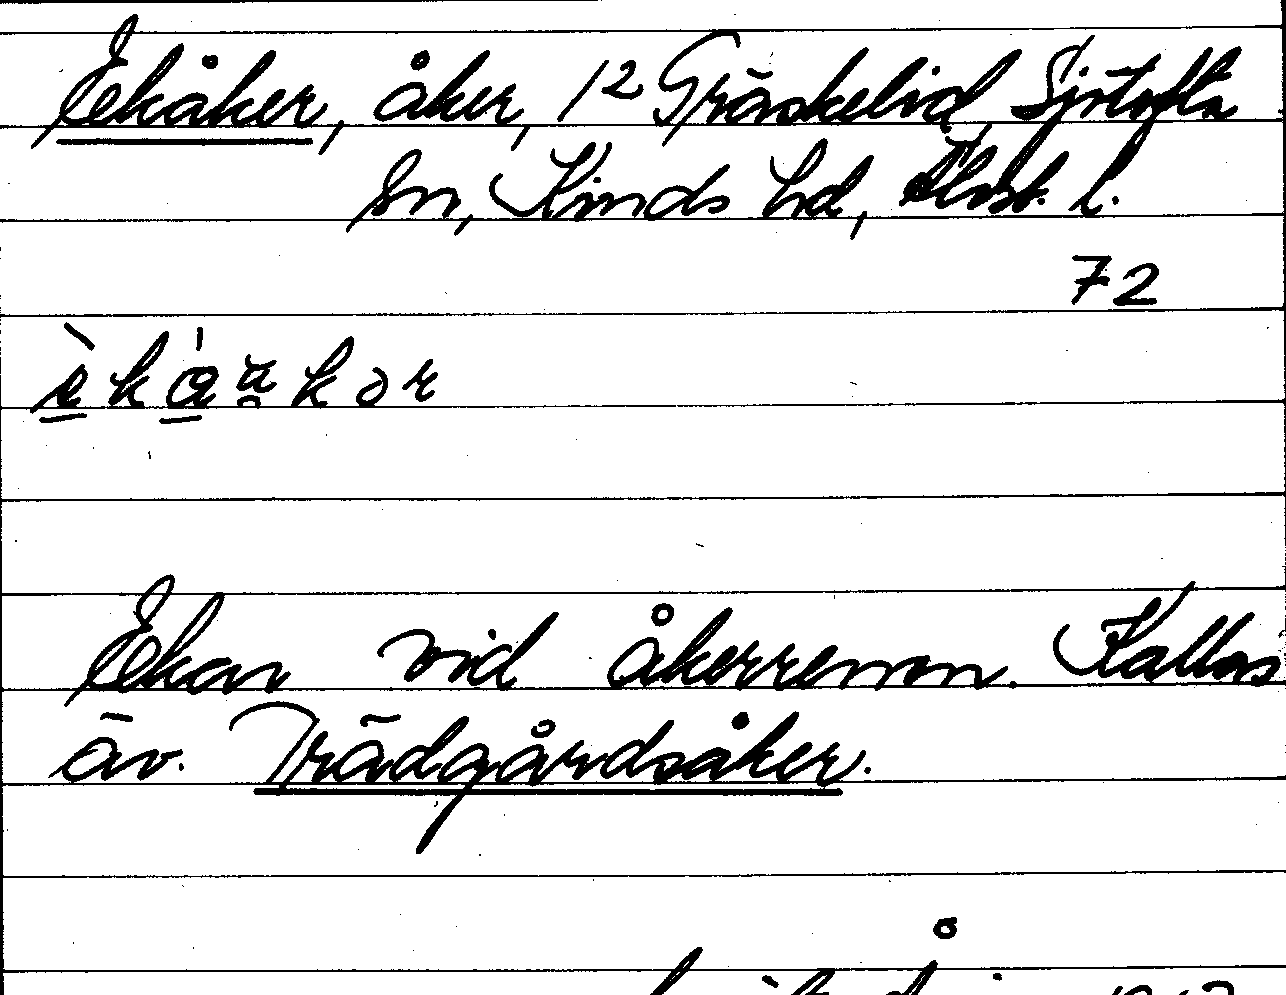 Ekåker, åker, 1² Gräskelid, Sjötofta
sn, Kinds hd, Älvsb. l.
72
Ekan vid åkerrenen. Kallas
äv. Trädgårdsåker.